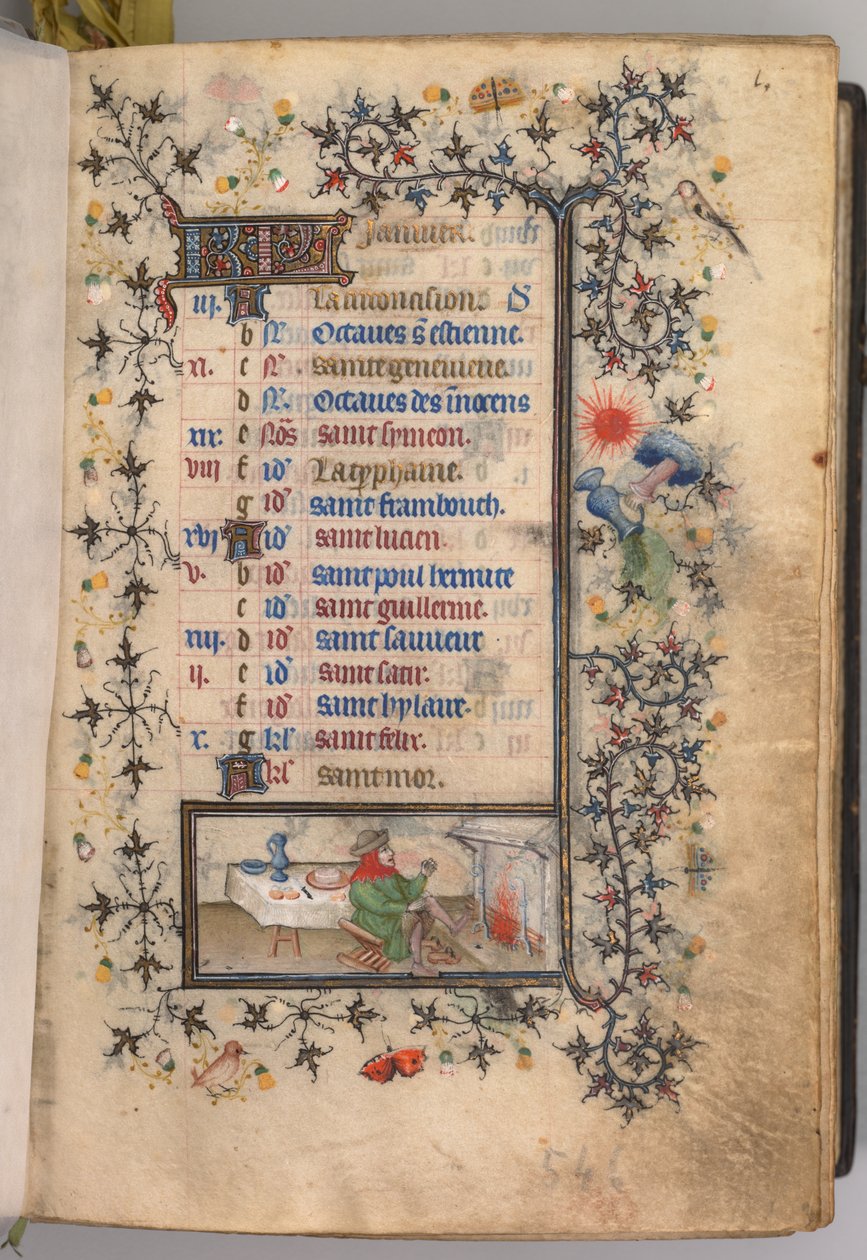 KL Januier.
iij. A La circoncision. D
b N̄. Octaues s̄ estienne.
xi. c N̄. sainte geneuieue.
d N̄. Octaues des īnocens
xix. e Nōs saint symeon.
viij f id' La typhaine.
g id' saint frambouch.
xvj A id' saint lucien.
v. b id' saint poul hermite
c id' saint guillerme.
xiij d id' saint sauueur
ij. e id' saint satir.
f id' saint hylaire.
x. g kl' saint felix.
A kl' saint mor.
546